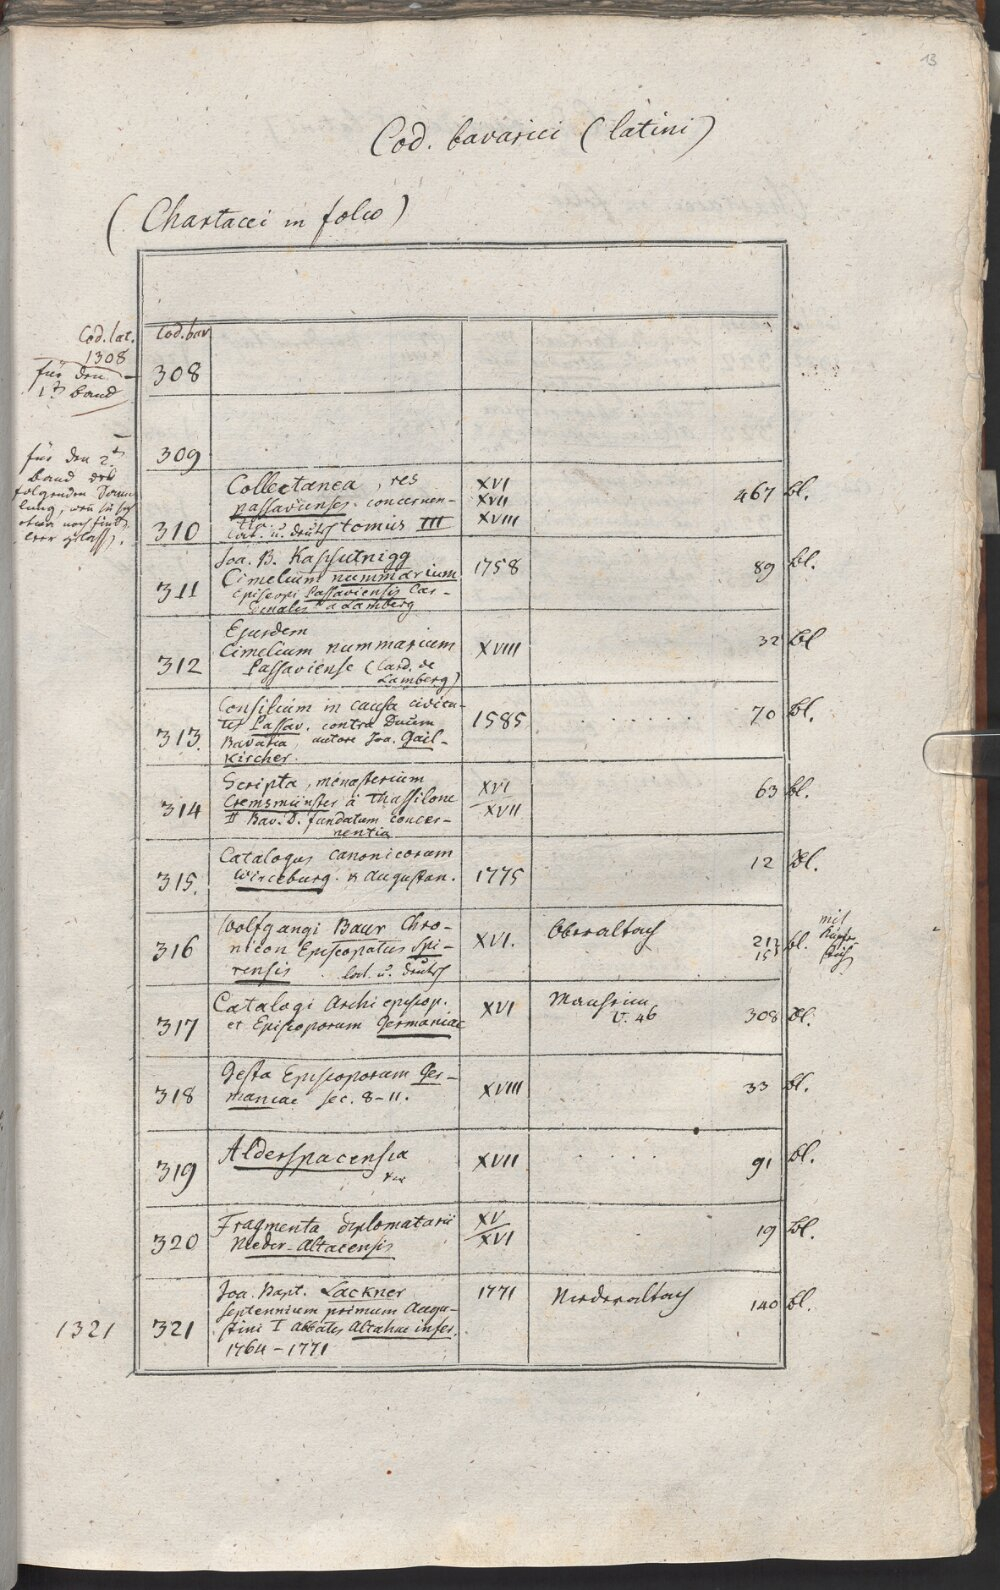 13
Cod. bavarici (latini)
(Chartacei in folio)
Cod. lat.
1308
für den
1ten Band
Cod. bav
308
für den 2ten
Band der
folgenden Samm
lung, wenn sie sich
etwa noch findt,
leer gelassen.
309
310
Collectanea, res
passavienses concernen-
tia.
lat. u. deutsch tomus III
XVI
XVII
XVIII
467 bl.
311
Joa. B. Kaschutnigg
Cimelium nummarium
episcopi Passaviensis Car-
dinalis a Lamberg
1758
89 bl.
312
Ejusdem
Cimelium nummarium
Passaviense (Card. de
Lamberg)
XVIII
32 bl
313.
Consilium in causa civita-
tis Passav. contra Ducem
Bavaria, autore Joa. Gail-
kircher.
1585
70 bl.
314
Scripta, monasterium
Cremsmünster à Thassilone
II Bav. D. fundatum concer-
nentia
XVI
XVII
63 bl.
315.
Catalogus canonicorum
Wirceburg. & Augustan.
1775
12 bl.
316
Wolfgangi Baur Chro-
nicon Episcopatus Spi-
rensis. lat. u. deutsch
XVI.
Oberaltach
212 bl.
15
mit
Kupfer
stich
317
Catalogi Archiepiscop.
et Episcoporum Germaniae
XVI
V. 46
308 bl.
318
Gesta Episcoporum Ger-
maniae sec. 8-11.
XVIII
33 bl.
319
Alderspacensia
XVII
91 bl.
320
Fragmenta diplomatarii
Nieder-Altacensis
XV
XVI
19 bl.
1321
321
Joa. Bapt. Lackner
septennium primum Augu-
stini I Abbatis Altahae infer.
1764-1771
1771
Niederaltach
140 bl.